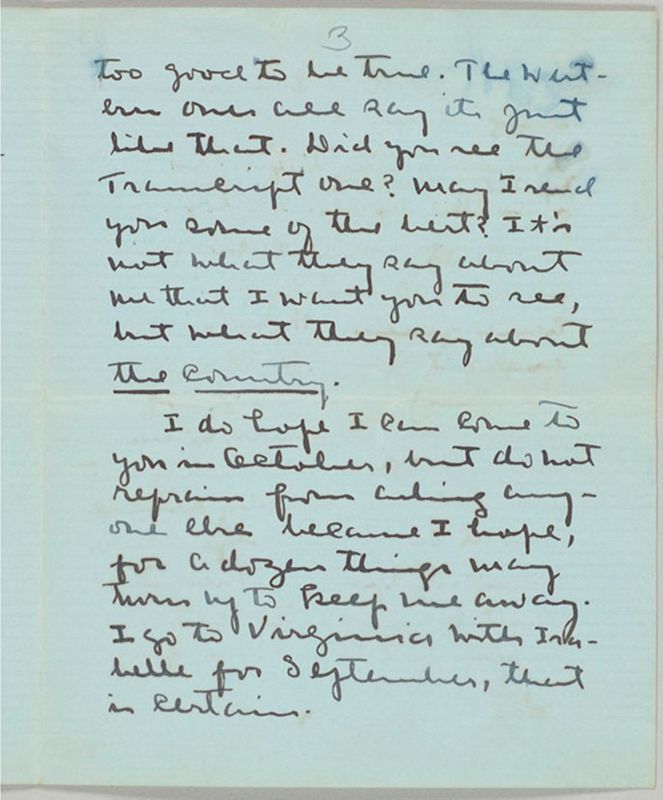 3
too good to be true. The West-
ern ones all say its just
like that. Did you see the
Transcript one? May I send
you some of the best? It's
not what they say about
me that I want you to see,
but what they say about
the Country.
I do hope I can come to
you in October, but do not
refrain from asking any-
one else because I hope,
for a dozen things may
turn up to keep me away.
I go to Virginia with Isa-
belle for September, that
is certain.